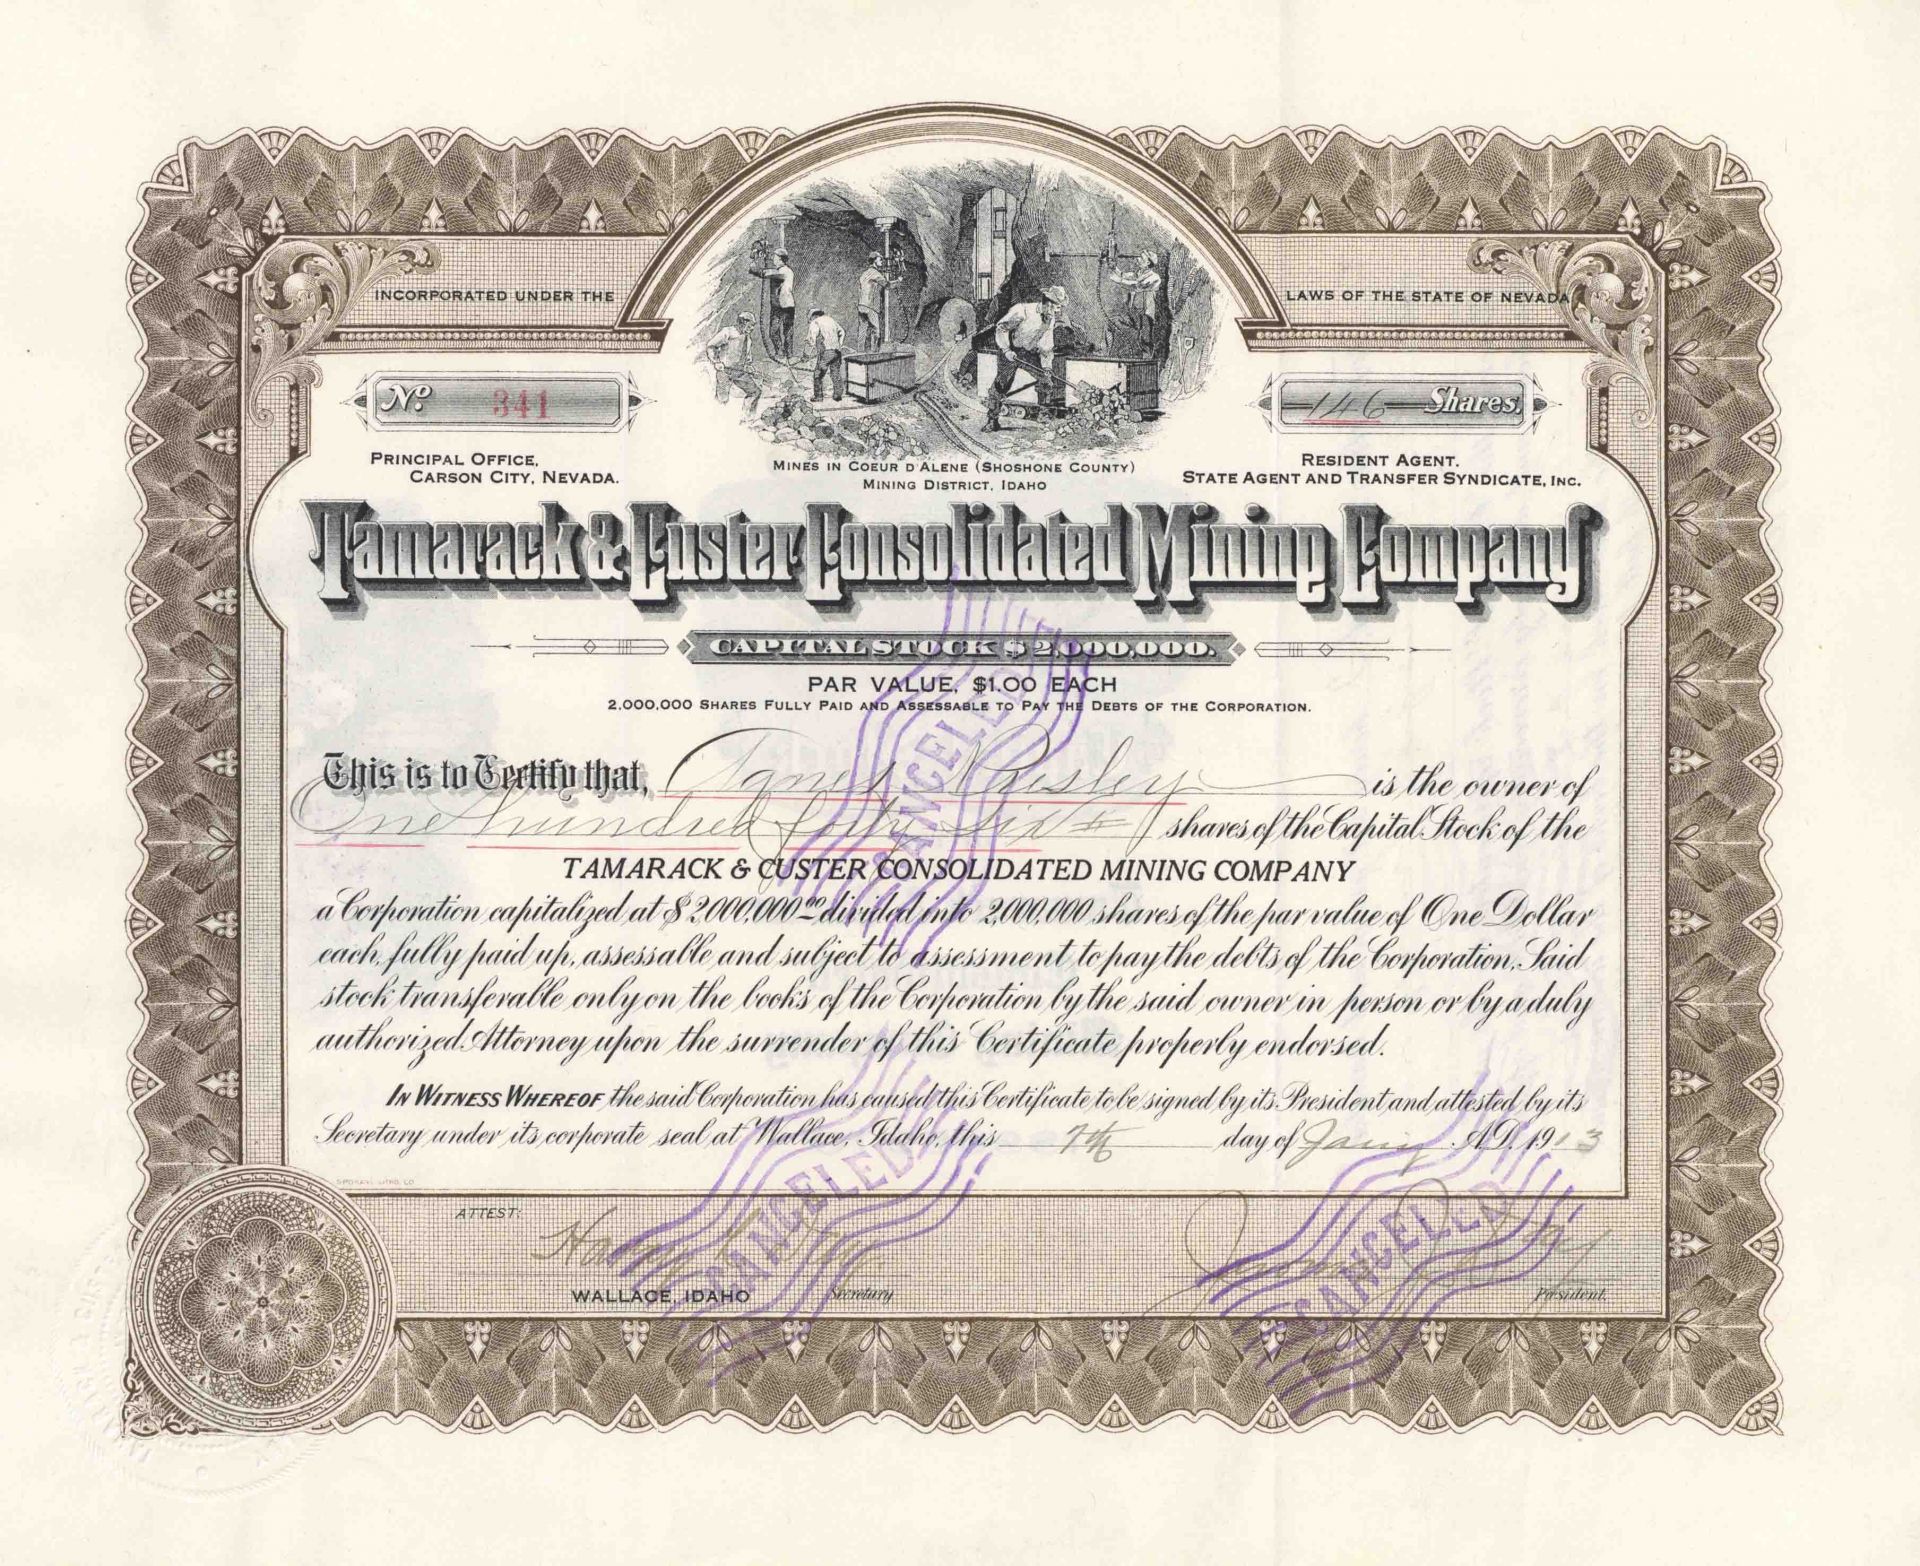 INCORPORATED UNDER THE LAWS OF THE STATE OF NEVADA
No. 341
146 Shares.
PRINCIPAL OFFICE,
CARSON CITY, NEVADA.
MINES IN COEUR D'ALENE (SHOSHONE COUNTY)
MINING DISTRICT, IDAHO
RESIDENT AGENT.
STATE AGENT AND TRANSFER SYNDICATE, INC.
Tamarack & Custer Consolidated Mining Company
CAPITAL STOCK $2,000,000.
PAR VALUE, $1.00 EACH
2,000,000 SHARES FULLY PAID AND ASSESSABLE TO PAY THE DEBTS OF THE CORPORATION.
This is to Certify that, Agnes Presley is the owner of
One hundred forty six shares of the Capital Stock of the
TAMARACK & CUSTER CONSOLIDATED MINING COMPANY
a Corporation capitalized at $2,000,000.00 divided into 2,000,000 shares of the par value of One Dollar
each, fully paid up, assessable and subject to assessment to pay the debts of the Corporation. Said
stock transferable only on the books of the Corporation by the said owner in person or by a duly
authorized Attorney upon the surrender of this Certificate properly endorsed.
IN WITNESS WHEREOF the said Corporation has caused this Certificate to be signed by its President and attested by its
Secretary under its corporate seal at Wallace, Idaho, this 7th day of Jany A.D. 1913
SPOKANE LITHO. CO.
ATTEST:
Harry
WALLACE, IDAHO Secretary
President.
CANCELED
CANCELED
CANCELED